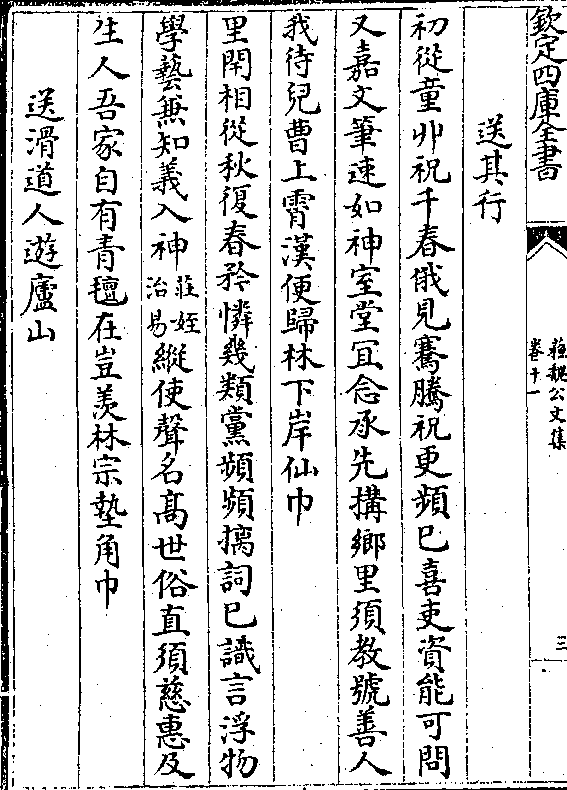 欽定四庫全書
蘇魏公文集
卷十一
三
送其行
初從童丱祝千春俄見騫騰祝更頻已喜吏資能可問
又嘉文筆速如神室堂冝念承先搆鄉里須教號善人
我待兒曹上霄漢便歸林下岸仙巾
里閈相從秋復春矜憐幾類黨頻頻摛詞已識言浮物
學藝無知義入神莊姪治易縱使聲名髙世俗直須慈惠及
生人吾家自有青氊在豈羡林宗墊角巾
送滑道人遊廬山